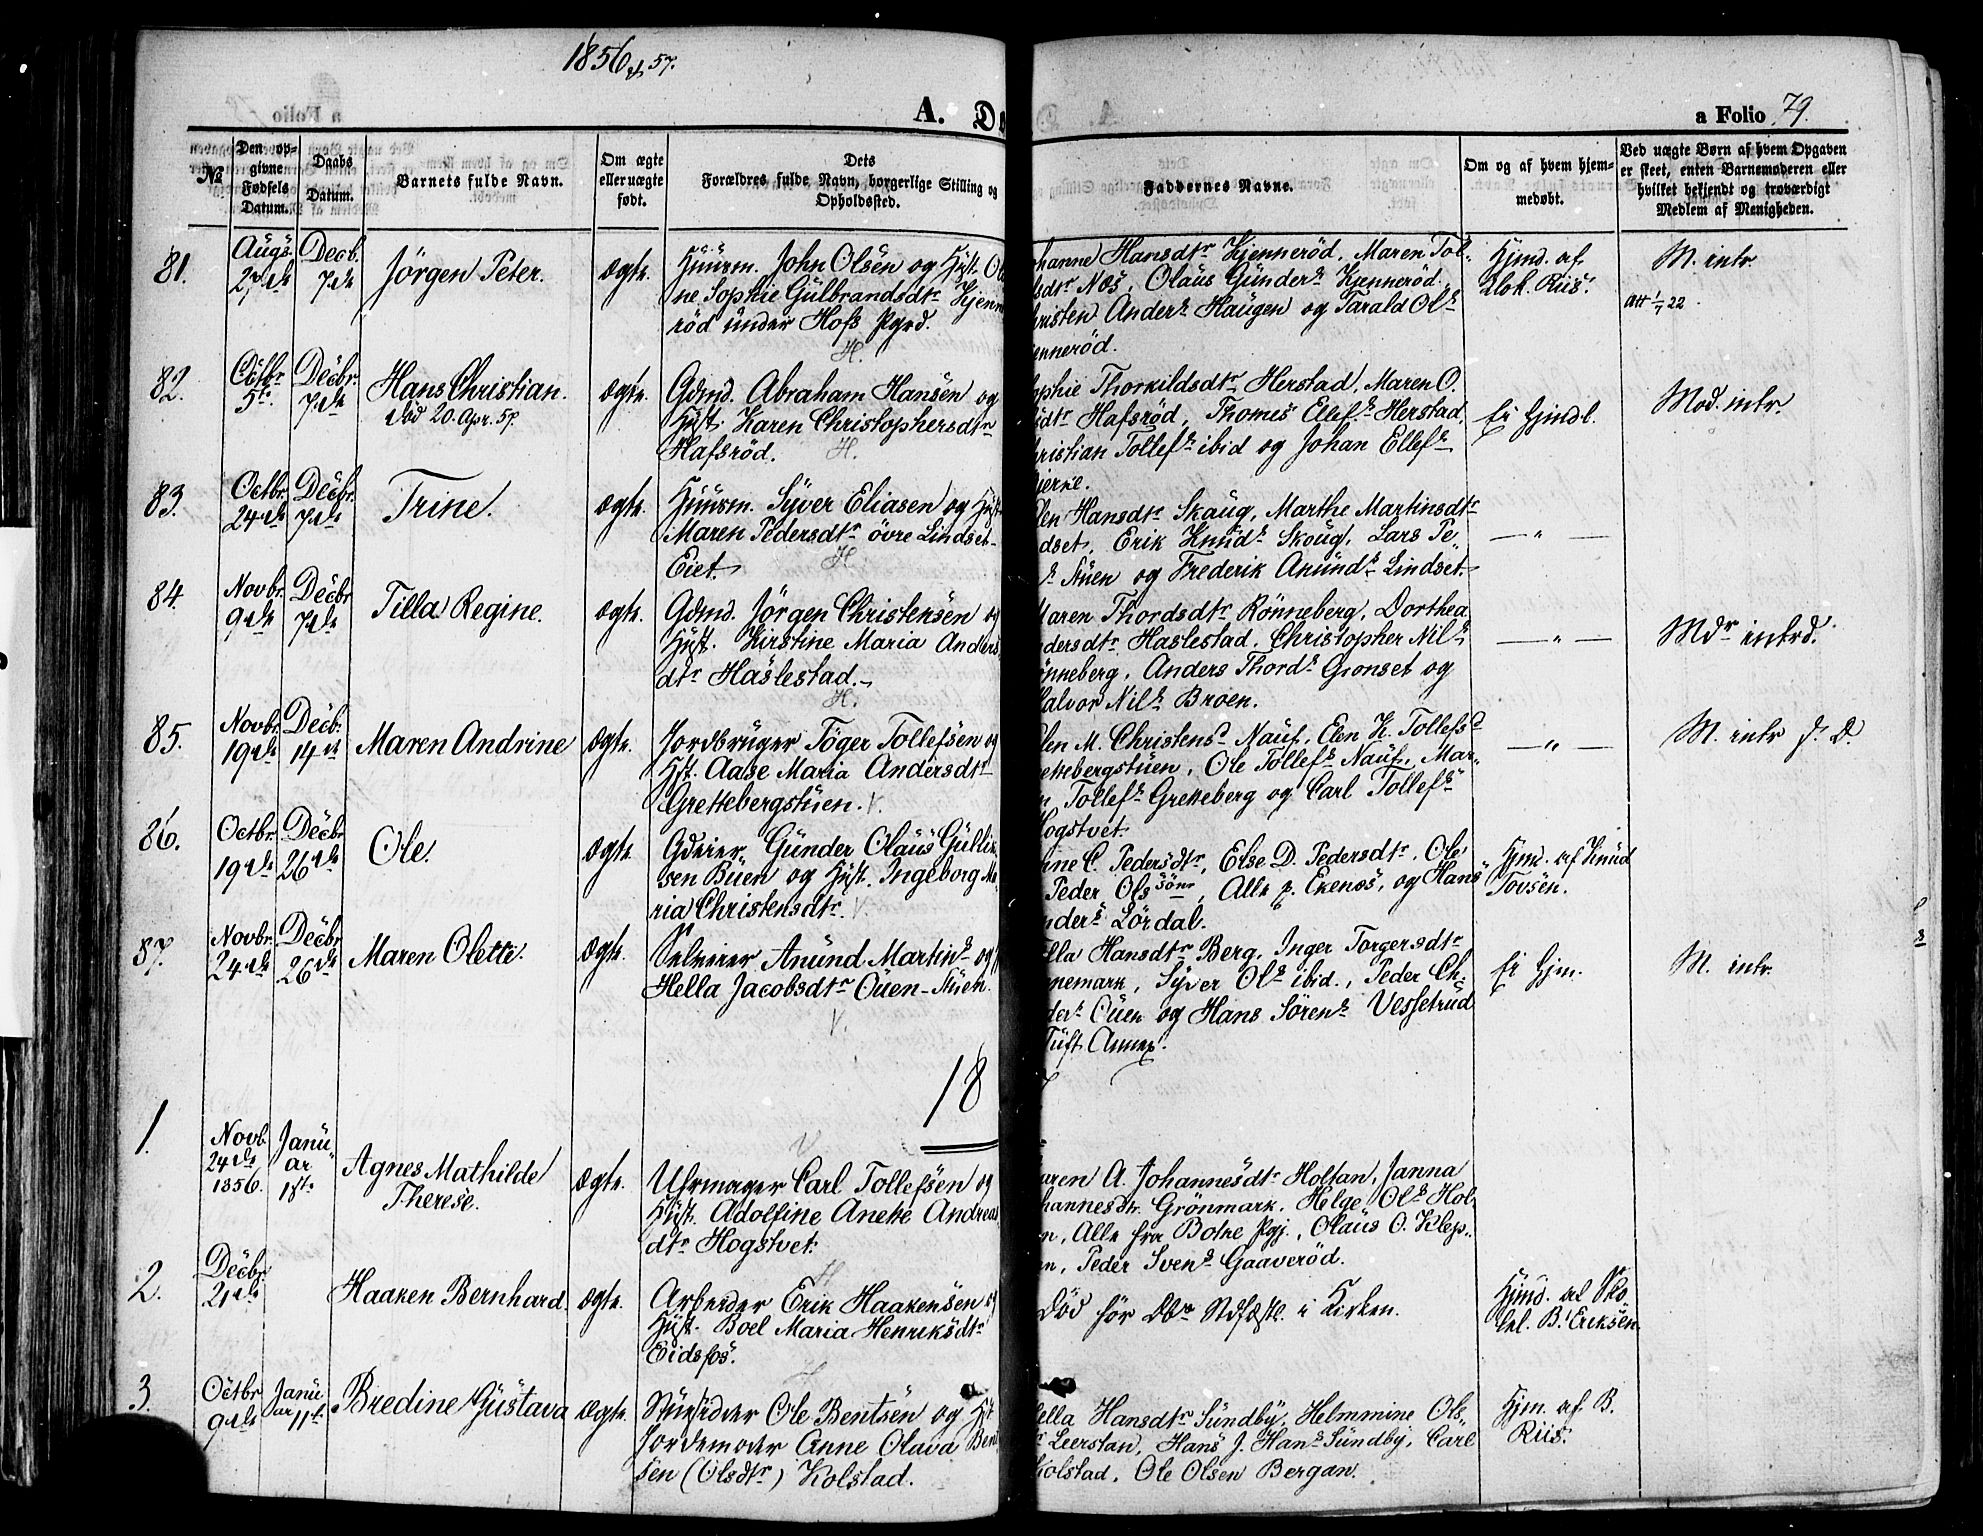 1856 & 57.
A.
a Folio 79.
№
Den op-
givne
Fødsels
Datum.
Daabs
Datum.
Barnets fulde Navn.
Om ægte
eller uægte
født.
Dets
Forældres fulde Navn, borgerlige Stilling og
Opholdssted.
Faddernes Navne.
Om og af hvem hjem-
medøbt.
Ved uægte Børn af hvem Opgaven
er skeet, enten Barnemoderen eller
hvilket bekjendt og troværdigt
Medlem af Menigheden.
81.
Augs.
27de
Decb.
7de
Jörgen Peter.
ægte.
Huusm. John Olsen og Hust. Ol
ne Sophie Gulbrandsdtr Kjenne
röd under Hofs Pgrd.
H.
ohanne Hansdtr Kjenneröd, Maren Tol-
sdtr Næs, Olaus Gunders. Kjenneröd,
hristen Anders. Haugen og Tarald Ols.
jenneröd.
Hjmd. af
Klok. Riis.
M. intr.
Att 1/7 22.
82.
Octbr
5te
Decbr.
7de
Hans Christian.
död 20. Apr. 57.
ægte.
Gdmd. Abraham Hansen og
Hust. Karen Christophersdtr
Hafsröd.
H.
ophie Thorkildsdtr Herstad, Maren O.
sdtr Hafsröd, Thomes Ellefs. Herstad,
hristian Tollefs. ibid og Johan Ellefs.
jerke.
Ei hjmd.
Mod. intr.
83.
Octbr.
24de
Decbr.
7de
Trine.
ægte.
Huusm. Syver Eliasen og Hust
Maren Pedersdtr övre Lindset-
Eiet.
H
len Hansdtr Skaug, Marthe Martinsdtr
dset, Erik Knuds. Skoug, Lars Pe-
s. Stuen og Frederik Anunds. Lindset.
— " —
84.
Novbr.
9de
Decbr
7de
Tilla Regine.
ægte.
Gdmd. Jörgen Christensen og
Hust. Kirstine Maria Anders
dtr Haslestad.
H.
Maren Thordsdtr Rönneberg, Dorthea
ndersdtr Haslestad, Christopher Nils.
önneberg, Anders Thords. Gronset og
Halvor Nils. Broen.
— " —
Mdr intrd.
85.
Novbr.
19de
Decbr.
14de
Maren Andrine
ægte.
Jordbruger Töger Tollefsen og
Hst. Aase Maria Andersdtr
Grettebergstuen. V.
len M. Christensd. Nauf, Elen K. Tollefsd
rettebergstuen, Ole Tollefs. Nauf, Mar-
n Tollefs. Gretteberg og Carl Tollefs.
Hogstvet.
— " —
M. intr s. D.
86.
Octbr.
19de
Decbr
26de
Ole.
ægte.
Gdeier Gunder Olaus Gullik
sen Buen og Hust. Ingeborg Ma
ria Christensdtr. V.
ine C. Pedersdtr, Else D. Pedersdtr, Ole
Peder Olssönr, Alle p. Ekenæs, og Hans
nders. Lördal.
Hjmd. af Knud
Tovsen.
87.
Novbr.
24de
Decbr
26de
Maren Olette.
ægte.
Selveier Anund Martins. og
Hella Jacobsdtr Ouen-Stuen.
V.
ella Hansdtr Berg, Inger Torgersdtr
nemark, Syver Ols. ibid., Peder Ch.
ders. Ouen og Hans Sörens. Vessetrud
Tuft Annex.
Ei hjm.
M. intr.
18
7
1.
Novb.
24de
1856.
Janu-
ar
1ste
Agnes Mathilde
Therese.
ægte.
V
Uhrmager Carl Tollefsen og
Hust. Adolfine Anette Andreas
dtr Hogstvet.
aren A. Johannesdtr Holtan, Janna
hannesdtr. Grönmark, Helge Ols. Hol-
n, Alle fra Botne Pgj., Olaus O. Klep-
n, Peder Svens. Gaaveröd.
2.
Decbr.
21de
Haaken Bernhard.
ægte.
H
Arbeider Erik Haakensen og
Hust. Boel Maria Henriksdtr
Eidsfos.
Död för Db. Stdfæstl. i Kirken.
Hjmd. af Sko
lel. B. Eriksen.
3
Octbr
9de
Janu
ar 11te
Bredine Gustava
ægte.
H
Stuesidder Ole Bentsen og Hst
Jordemoder Anne Olava Bent
sen (Olsdtr) Kolstad.
ella Hansdtr Sundby, Helmmine Ols-
r Leerstan, Hans J. Hans. Sundby, Carl
Kolstad, Ole Olsen Bergan.
Hjm. af B.
Riis.